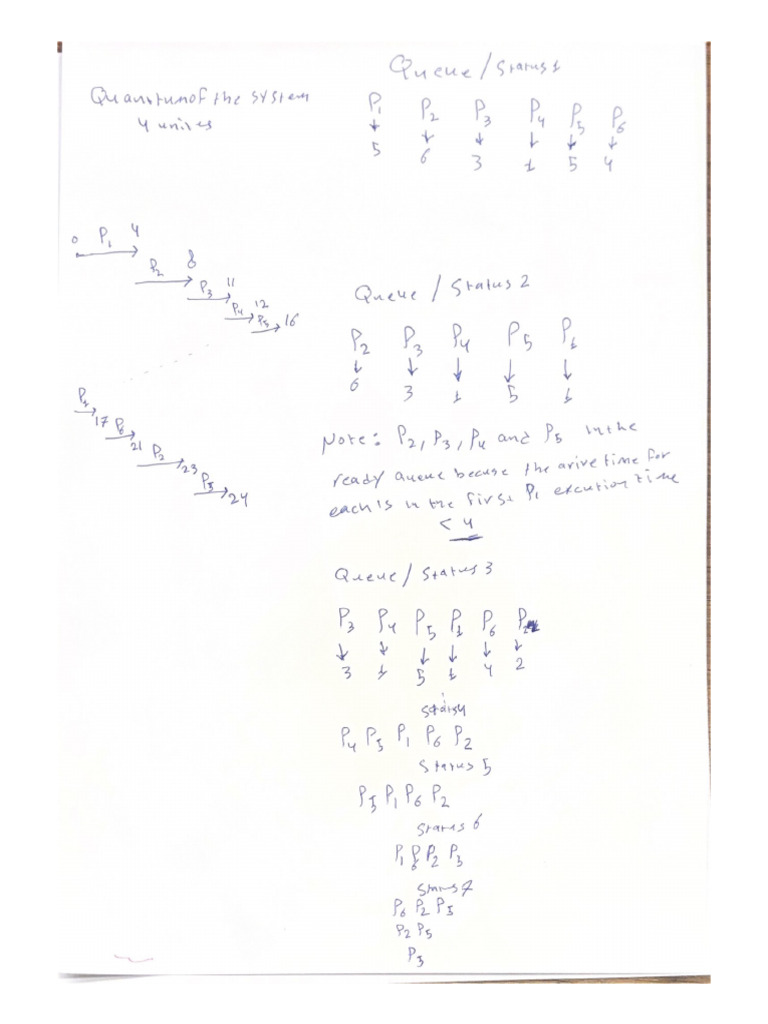 Queue / Status 1
Quanstum of the system
4 unites
P1 P2 P3 P4 P5 P6
5 6 3 1 5 4
0 P1 4
P2 8
P3 11
P4 12
P5 16
P1 17
P6 21
P2 23
P5 24
Queue / Status 2
P2 P3 P4 P5 P1
6 3 1 5 1
Note: P2, P3, P4 and P5 in the
ready queue becuse the arive time for
each is in the first P1 excution time
< 4
Queue / Status 3
P3 P4 P5 P1 P6 P2
3 1 5 1 4 2
Status 4
P4 P5 P1 P6 P2
Status 5
P5 P1 P6 P2
Status 6
P1 P6 P2 P5
Status 7
P6 P2 P5
P2 P5
P5